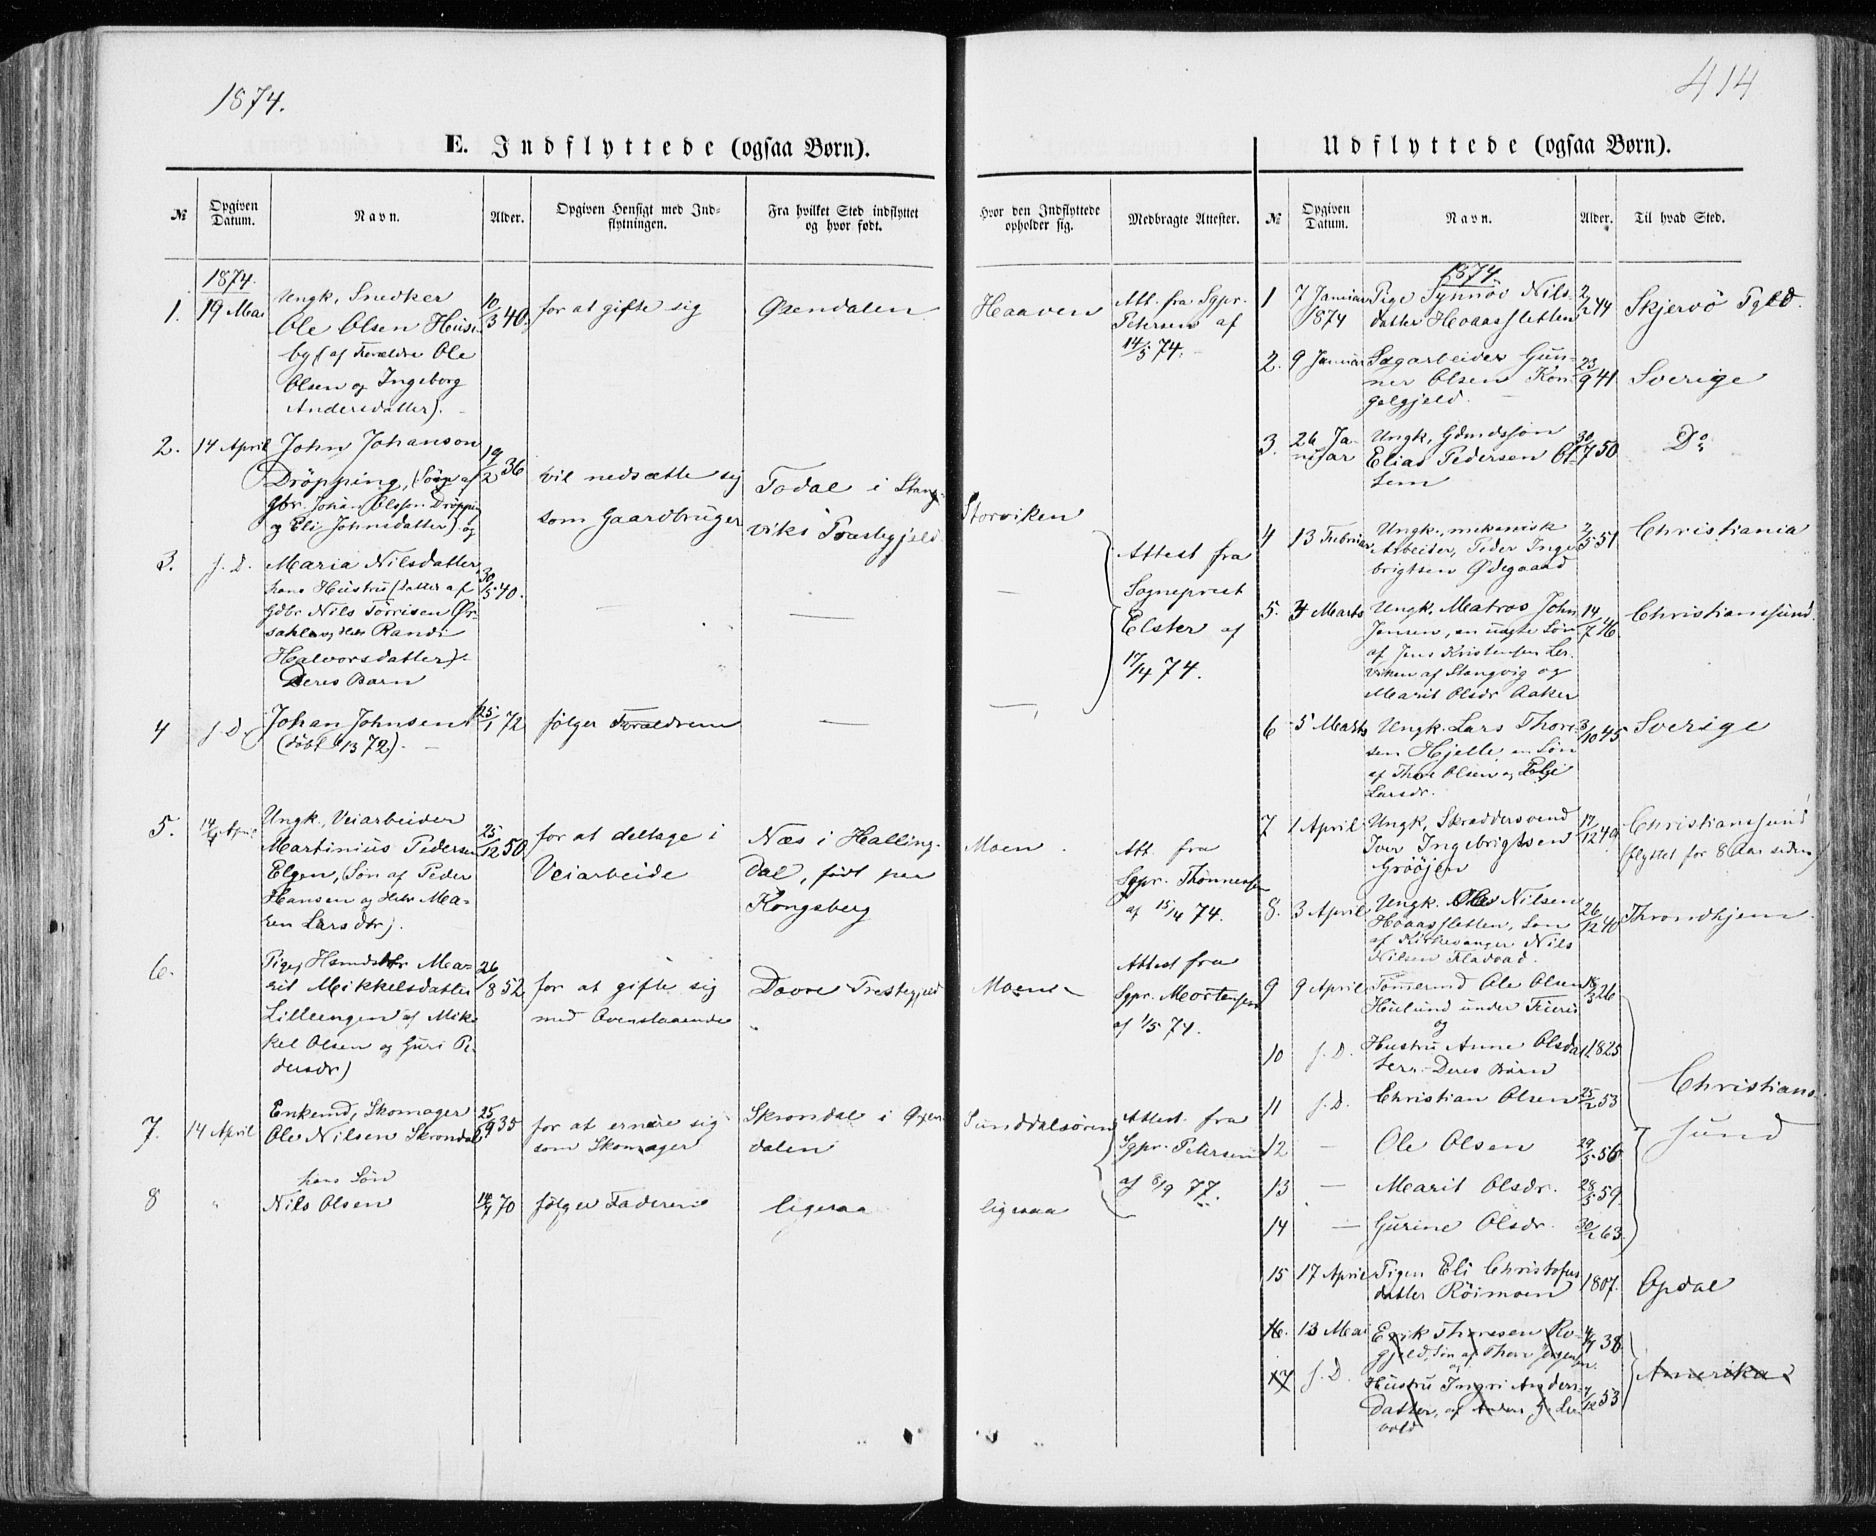 1874.
414
E. Indflyttede (ogsaa Børn).
Udflyttede (ogsaa Børn).
№
Opgiven Datum.
Navn.
Alder.
Opgiven Hensigt med Ind-
flytningen.
Fra hvilket Sted indflyttet
og hvor født.
Hvor den Indflyttede
opholder sig.
Medbragte Attester.
№
Opgiven Datum.
Navn.
Alder.
Til hvad Sted.
1874.
1. 19 Mai
Ungk, Snedker
Ole Olsen Huse-
by (af Forældre Ole
Olsen og Ingeborg
Andersdatter).
10/3 40.
for at gifte sig
Øxendalen
Haaven
Att. fra Sgpr.
Petersen af
14/5 74.
2. 14 April
John Johanson
Dröpping, (Søn af
Gbr. Johan Olssen Dröpping
og Eli Johnsdatter) og
19/2 36
vil nedsætte sig
som Gaardbruger
Todal i Stang-
viks Præstegjeld
Storviken
3. s. D.
Maria Nilsdatter
hans Hustru (datter af
Gdbr. Nils Torrisen
Randi
Halvorsdatter).
Deres Barn
30/5 40.
Attest fra
Sogneprest
Elster af
17/4 74.
4 s. D.
Johan Johnsen
(døbt 1/3 72).
25/1 72
følger Forældrene
5. 14/4 April
Ungk, Veiarbeider
Martinius Pedersen
Elgen, Søn af Peder
Hansen og Hstr. Ma-
ren Larsdtr).
25/12 50
for at deltage i
Veiarbeide
Næs i Halling-
dal, født paa
Kongsberg
Moen.
Att. fra
Sgpr. Thönnesen
af 15/4 74.
6.
Pige, Ma-
rit Mikkelsdatter
Lilleengen af Mik-
kel Olsen og Guri Pe-
dersdr)
26/8 52
for at gifte sig
med Ovenstaaende
Dovre Prestegjeld
Moen
Attest fra
Sgpr. Mortensen
af 1/5 74.
7. 14 April
Enkemd, Skomager
Ole Nilsen Skrondal
25/9 35
for at ernære sig
som Skomager
Skrondal i Øxen-
dalen
Sunddalsøren
Attest fra
Sgpr. Petersen
af 8/9 77.
hans Søn
8 " Nils Olsen
14/4 70
følger Faderen
ligesaa
ligesaa
1874.
1 7 Januar 1874
Pige Synnöv Nils-
datter Hoaassletten
2/2 44
Skjervö Pgld.
2. 9 Januar
Sagarbeider Gun-
ner Olsen Kon-
gelgjeld
23/9 41
Sverige
3. 26 Ja-
nuar
Ungk, Gdmdssön
Elias Pedersen Ot-
tem
30/7 50
Do
4 13 Februar
Ungk. mekanisk
Arbeider, Peder Inge-
brigtsen Ødegaard
2/5 51
Christiania
5. 4 Marts
Ungk. Matros John
Jensen, en uægte Søn
af Jens Kristensen Ler-
viken af Stangvig og
Marit Olsdr Aaker
14/7 46
Christianssund
6 5 Marts
Ungk. Lars Thore-
sen Hjelle en Søn
af Thore Olsen og
Larsdr.
3/10 45
Sverige
7 1 April
Ungk, Skræddersvend
Iver Ingebrigtsen
Grööjen
17/12 40
Christianssund
(flyttet for 8 Aar siden)
8. 3 April
Ungk. Ole Nilsen
Hoaassletten, Søn
af Kirkesanger Nils
Nilsen Fladvad.
26/12 40
Throndhjem.
9 9 April
Tømmermd Ole Olsen
under
og
18/3 26
10 s. D.
Hustru Anne Olsdat-
ter. Deres Børn
1825
11 s. D.
Christian Olsen
25/2 53
Christians-
sund
12 — Ole Olsen 29/5 56
13 — Marit Olsdr. 28/5 59.
14 — Gurine Olsdr. 30/12 63.
15 17 April
Pigen Eli Christofers
datter Röimoen
1807.
Opdal
16. 13 Mai
Erik Thoresen Ro-
gjeld, Søn af Thore
4/4 38
og
17 s. D.
Hustru Ingri Anders-
datter, af Anders Le-
vold
7/12 53
Amerika